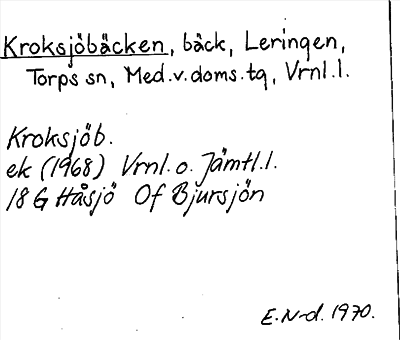 Kroksjöbäcken, bäck, Leringen,
Torps sn, Med.v.doms.tg, Vrnl.l.
Kroksjöb.
ek (1968) Vrnl. o. Jämtl.l.
18 G Håsjö Of Bjursjön
E.N-d. 1970.